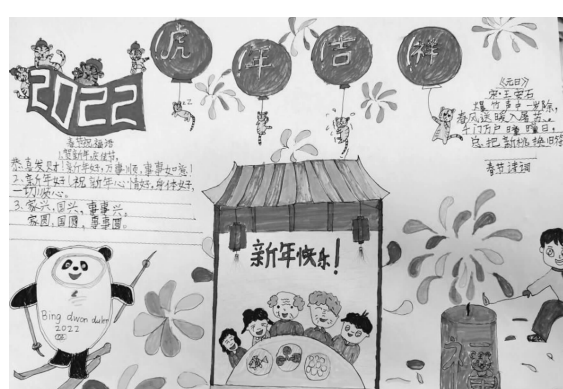 虎年吉祥
2022
春节祝福语
1.贺新年,庆佳节,
恭喜发财!新年好,万事顺,事事如意!
2.新年好!祝新年心情好,身体好,
一切顺心。
3.家兴,国兴,事事兴,
家圆,国圆,事事圆。
《元日》
宋·王安石
爆竹声中一岁除,
春风送暖入屠苏。
千门万户曈曈日,
总把新桃换旧符
春节诗词
新年快乐!
Bing dwon
2022